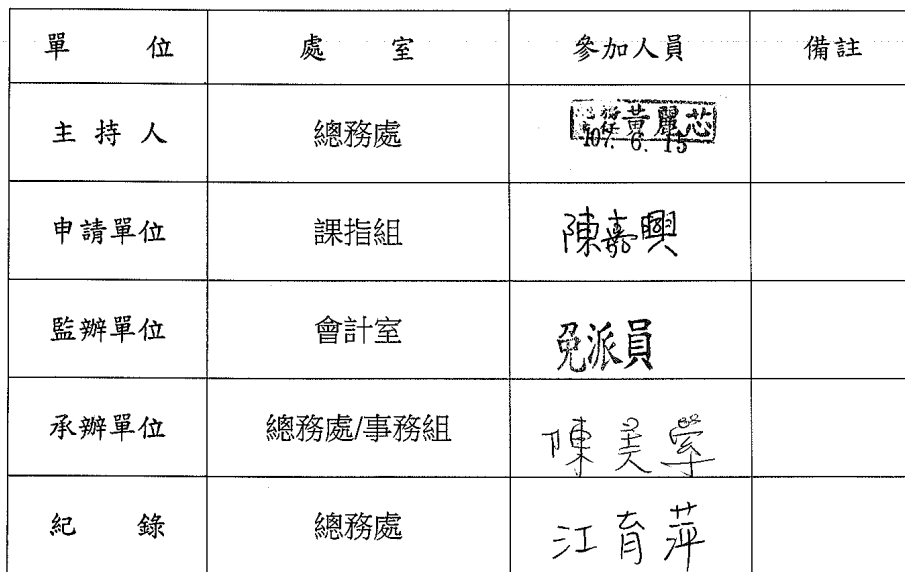 單 位 處 室 參加人員 備註
主持人 總務處 黃麗芯
107. 6. 15
申請單位 課指組 陳嘉興
監辦單位 會計室 免派員
承辦單位 總務處/事務組 陳美
紀 錄 總務處 江育萍